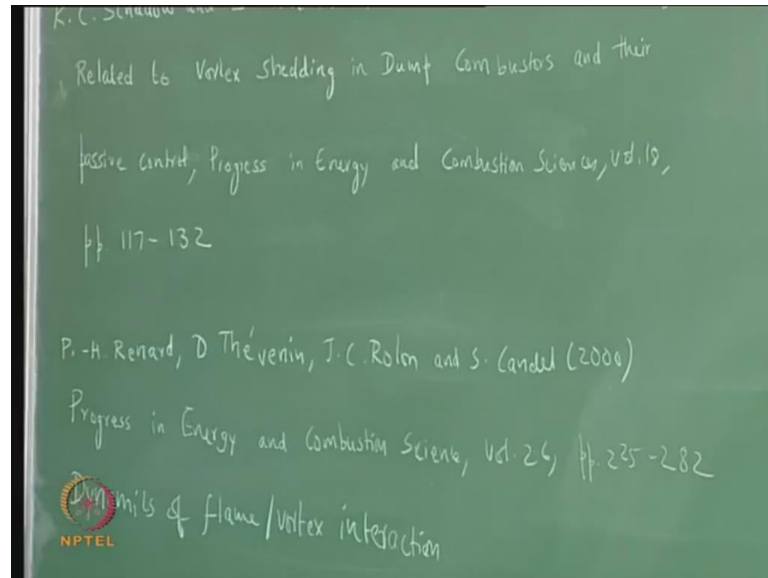 K. C. Schadow and
Related to Vortex Shedding in Dump Combustors and their
passive control, Progress in Energy and Combustion Sciences, vol. 18,
pp. 117-132
P.-H. Renard, D Thévenin, J. C. Rolon and S. Candel (2000)
Progress in Energy and Combustion Science, Vol. 26, pp. 225-282
Dynamics of flame/vortex interaction
NPTEL